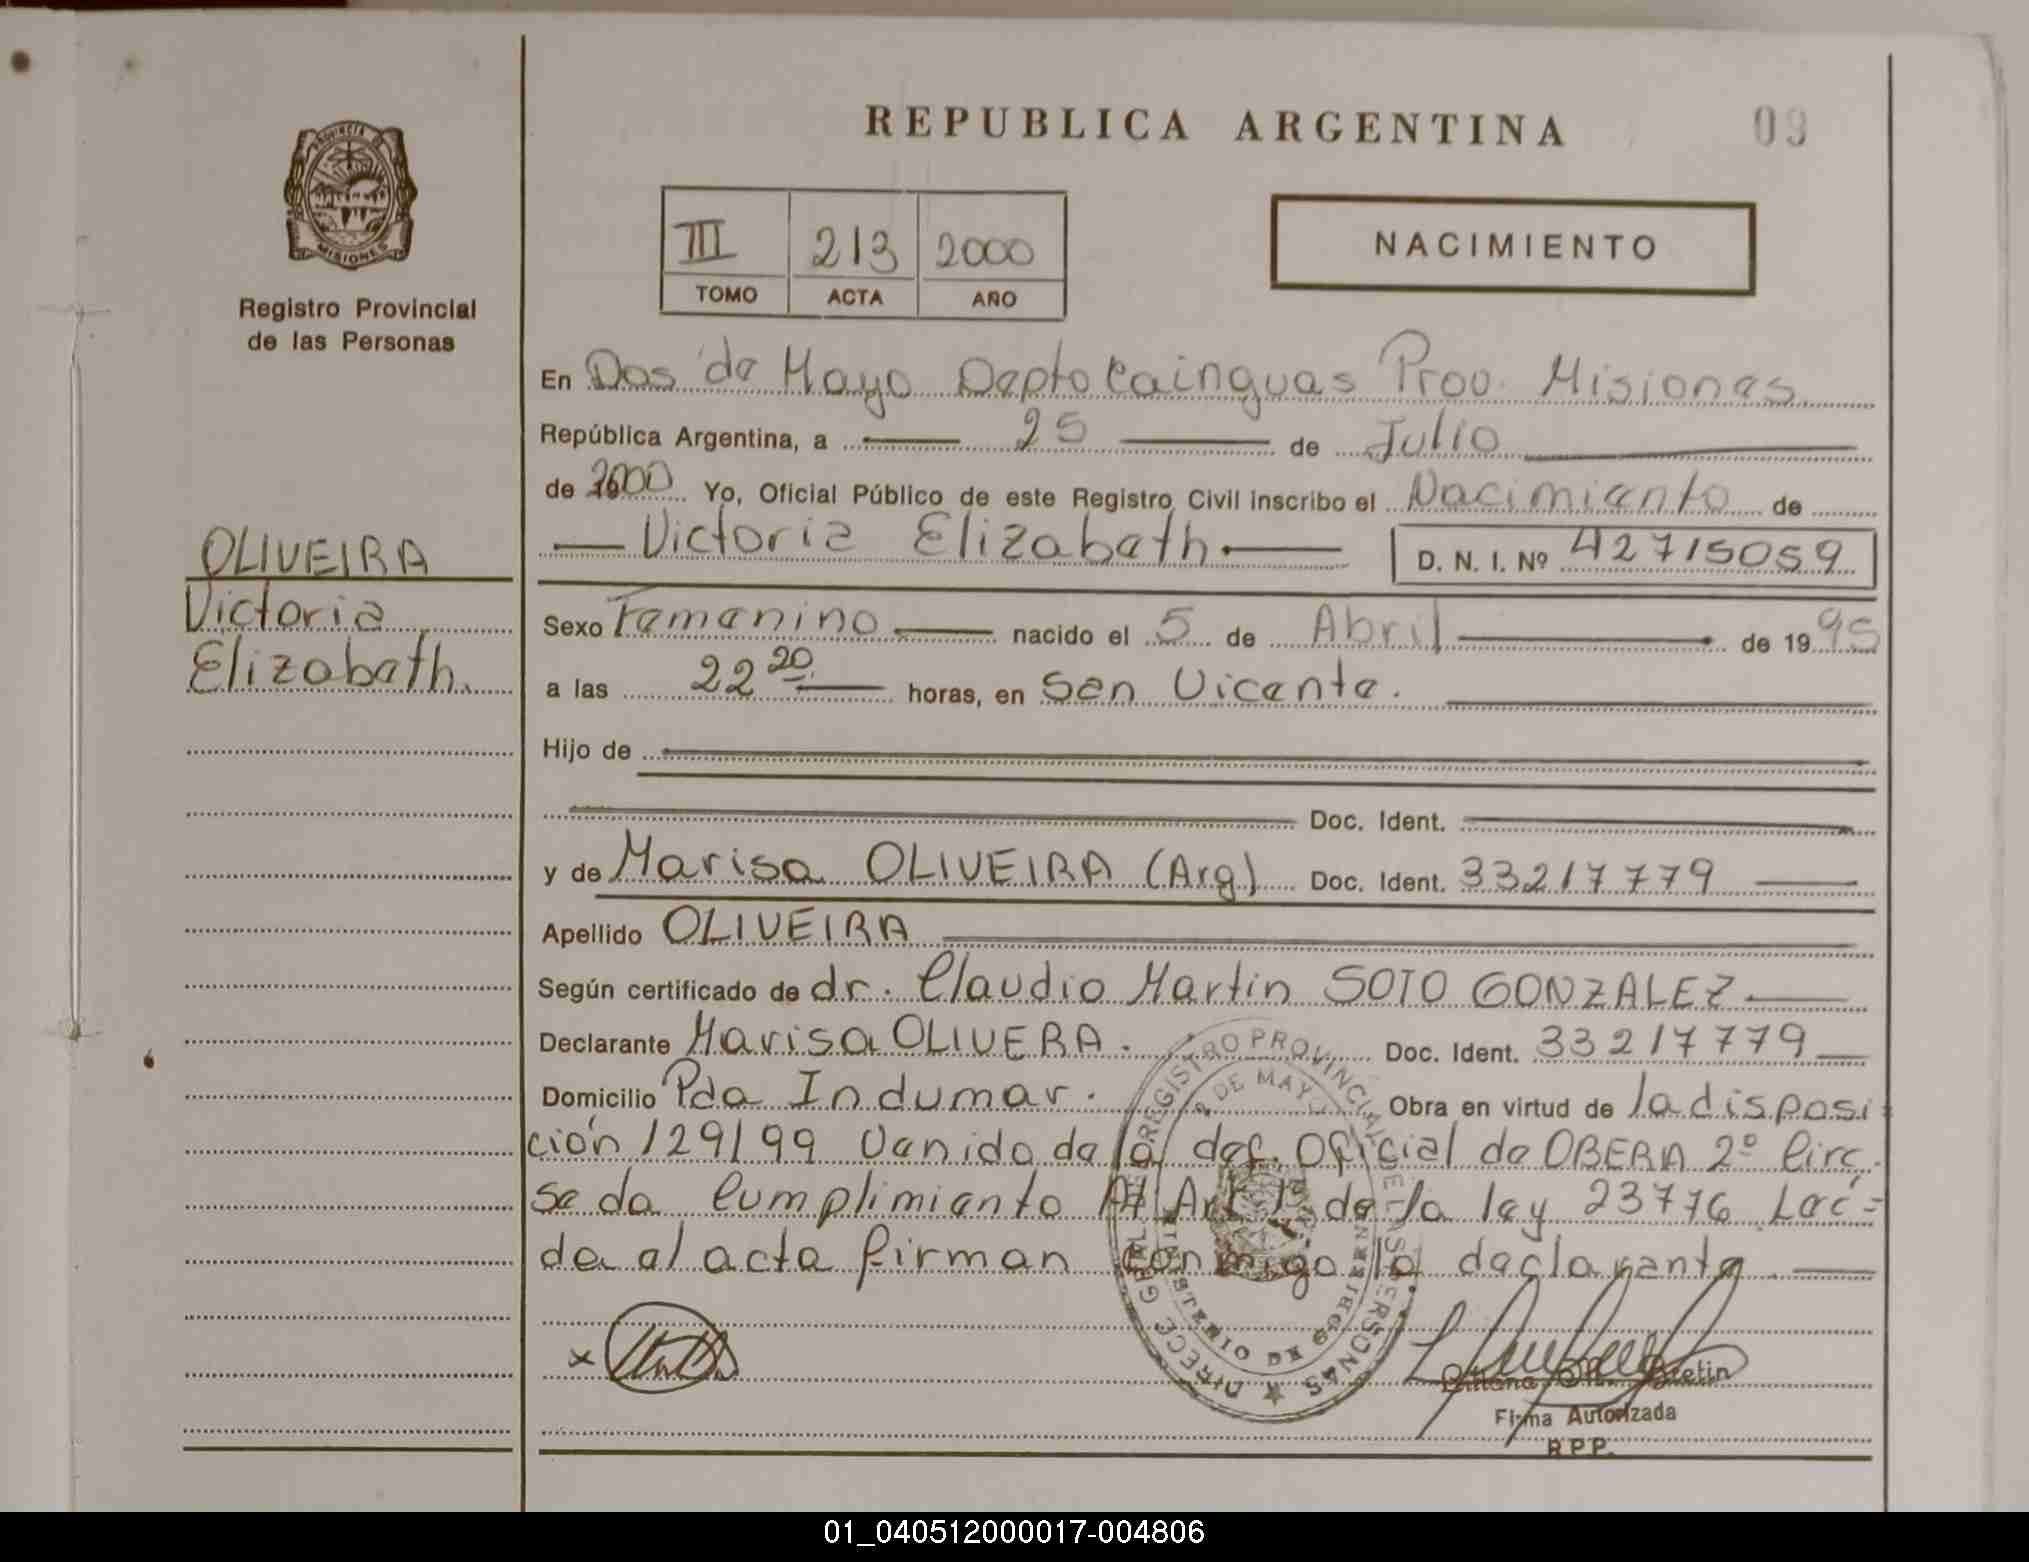 REPUBLICA ARGENTINA
09
PROVINCIA
MISIONES
Registro Provincial
de las Personas
III 213 2000
TOMO ACTA AÑO
NACIMIENTO
En Dos de Mayo Depto Cainguas Prov. Misiones
República Argentina, a 25 de Julio
de 2000 Yo, Oficial Público de este Registro Civil inscribo el Nacimiento de
Victoria Elizabeth D. N. I. Nº 42715059
OLIVEIRA
Victoria
Elizabeth.
Sexo Femenino nacido el 5 de Abril de 1995
a las 22 20 horas, en San Vicente.
Hijo de
Doc. Ident.
y de Marisa OLIVEIRA (Arg) Doc. Ident. 33217779
Apellido OLIVEIRA
Según certificado de dr. Claudio Martin SOTO GONZALEZ
Declarante Marisa OLIVERA. Doc. Ident. 33217779
Domicilio Pda Indumar. Obra en virtud de la disposi
ción 129/99 Venida de la def. Oficial de OBERA 2º Circ.
se da Cumplimiento Al Art 1º de la ley 23776 Leí=
da el acta firman conmigo la declarante
REGISTRO PROVINCIAL DE LAS PERSONAS
2 DE MAYO
MINISTERIO DE GOBIERNO
Bretin
Firma Autorizada
R.P.P.
01_040512000017-004806